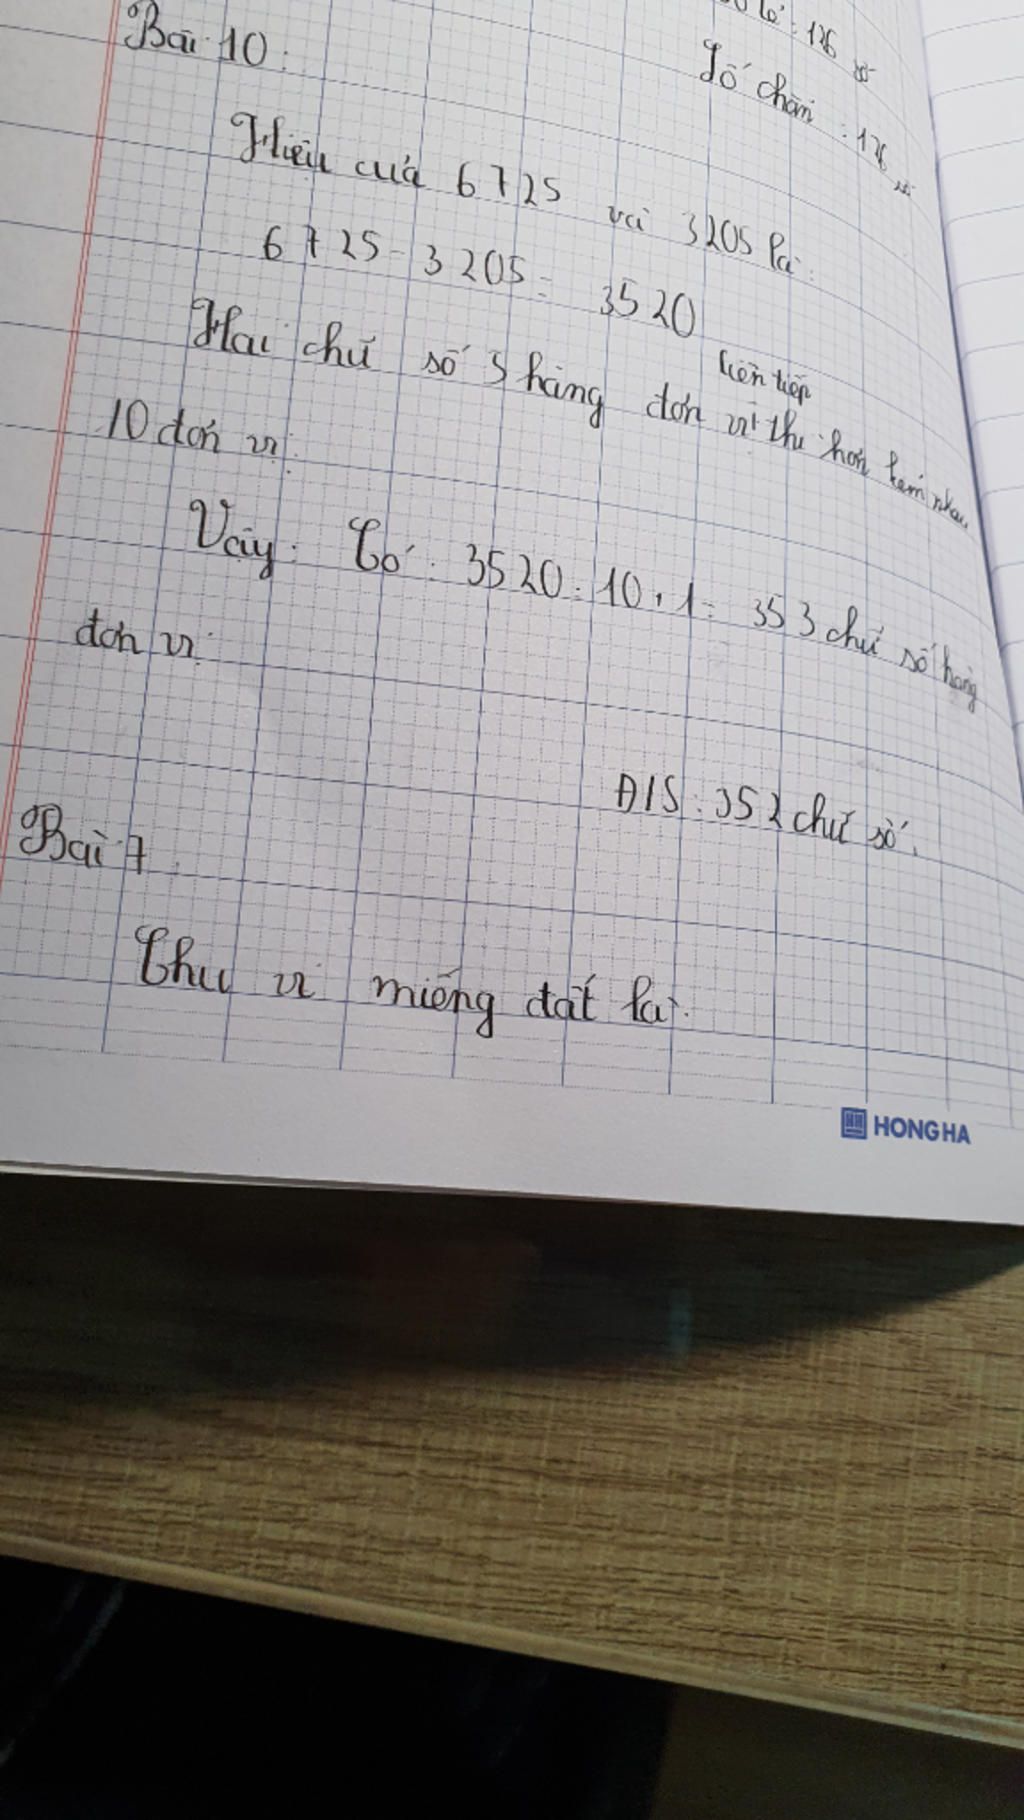 số lẻ: 126 số
Số chẵn: 126 số
Bài 10:
Hiệu của 6725 và 3205 là:
6725 - 3205 = 3520
Hai chữ số 5 hàng đơn vị liên tiếp thì hơn kém nhau
10 đơn vị.
Vậy: Có: 3520 : 10 + 1 = 353 chữ số hàng
đơn vị.
Đ/S: 352 chữ số.
Bài 7
Chu vi miếng đất là:
HONG HA